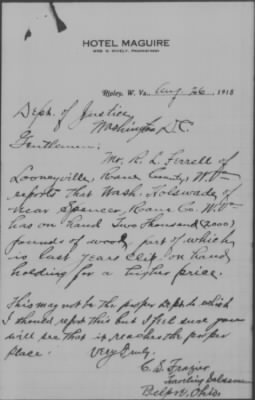 HOTEL MAGUIRE
MRS. D. RIVELY, PROPRIETRESS
Ripley, W. Va. Aug. 26 1918
Dept. of Justice,
Washington D.C.
Gentlemen:
Mr. R. L. Ferrell of
Looneyville, Roane County, W.Va
reports that Wash. Holswade, of
near Spencer, Roane Co. W.Va
has on hand Two Thousand (2000)
pounds of wool, part of which
is last years clip on hand
holding for a higher price.
This may not be the proper Dept. to which
I should report this but I feel sure you
will see that it reaches the proper
place. Very Truly,
C. S. Frazier
Traveling Salesman
Belpre, Ohio.